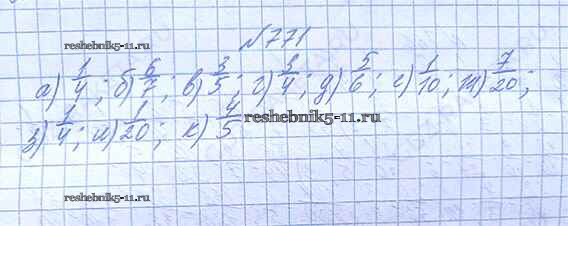 №771
reshebnik5-11.ru
а) 1/4; б) 6/7; в) 3/5; г) 3/4; д) 5/6; е) 1/10; ж) 7/20;
з) 1/4; и) 1/20; к) 4/5
reshebnik5-11.ru
reshebnik5-11.ru